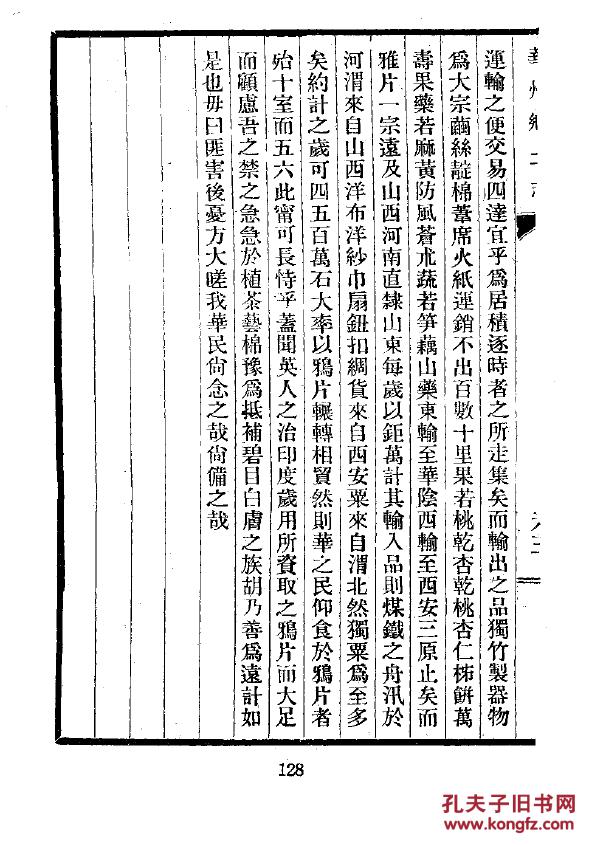 運輸之便交易四達宜乎爲居積逐時者之所走集矣而輸出之品獨竹製器物
爲大宗繭絲靛棉葦席火紙運銷不出百數十里果若桃乾杏乾桃杏仁柹餅萬
壽果藥若麻黃防風蒼朮蔬若笋藕山藥東輸至華陰西輸至西安三原止矣而
雅片一宗遠及山西河南直隸山東每歲以鉅萬計其輸入品則煤鐵之舟汎於
河渭來自山西洋布洋紗巾扇鈕扣綢貨來自西安粟來自渭北然獨粟爲至多
矣約計之歲可四五百萬石大率以鴉片輾轉相貿然則華之民仰食於鴉片者
殆十室而五六此甯可長恃乎蓋聞英人之治印度歲用所資取之鴉片而大足
而顧慮吾之禁之急急於植茶藝棉豫爲抵補碧目白膚之族胡乃善爲遠計如
是也毋曰匪害後憂方大嗟我華民尙念之哉尙備之哉
128
孔夫子旧书网
www.kongfz.com